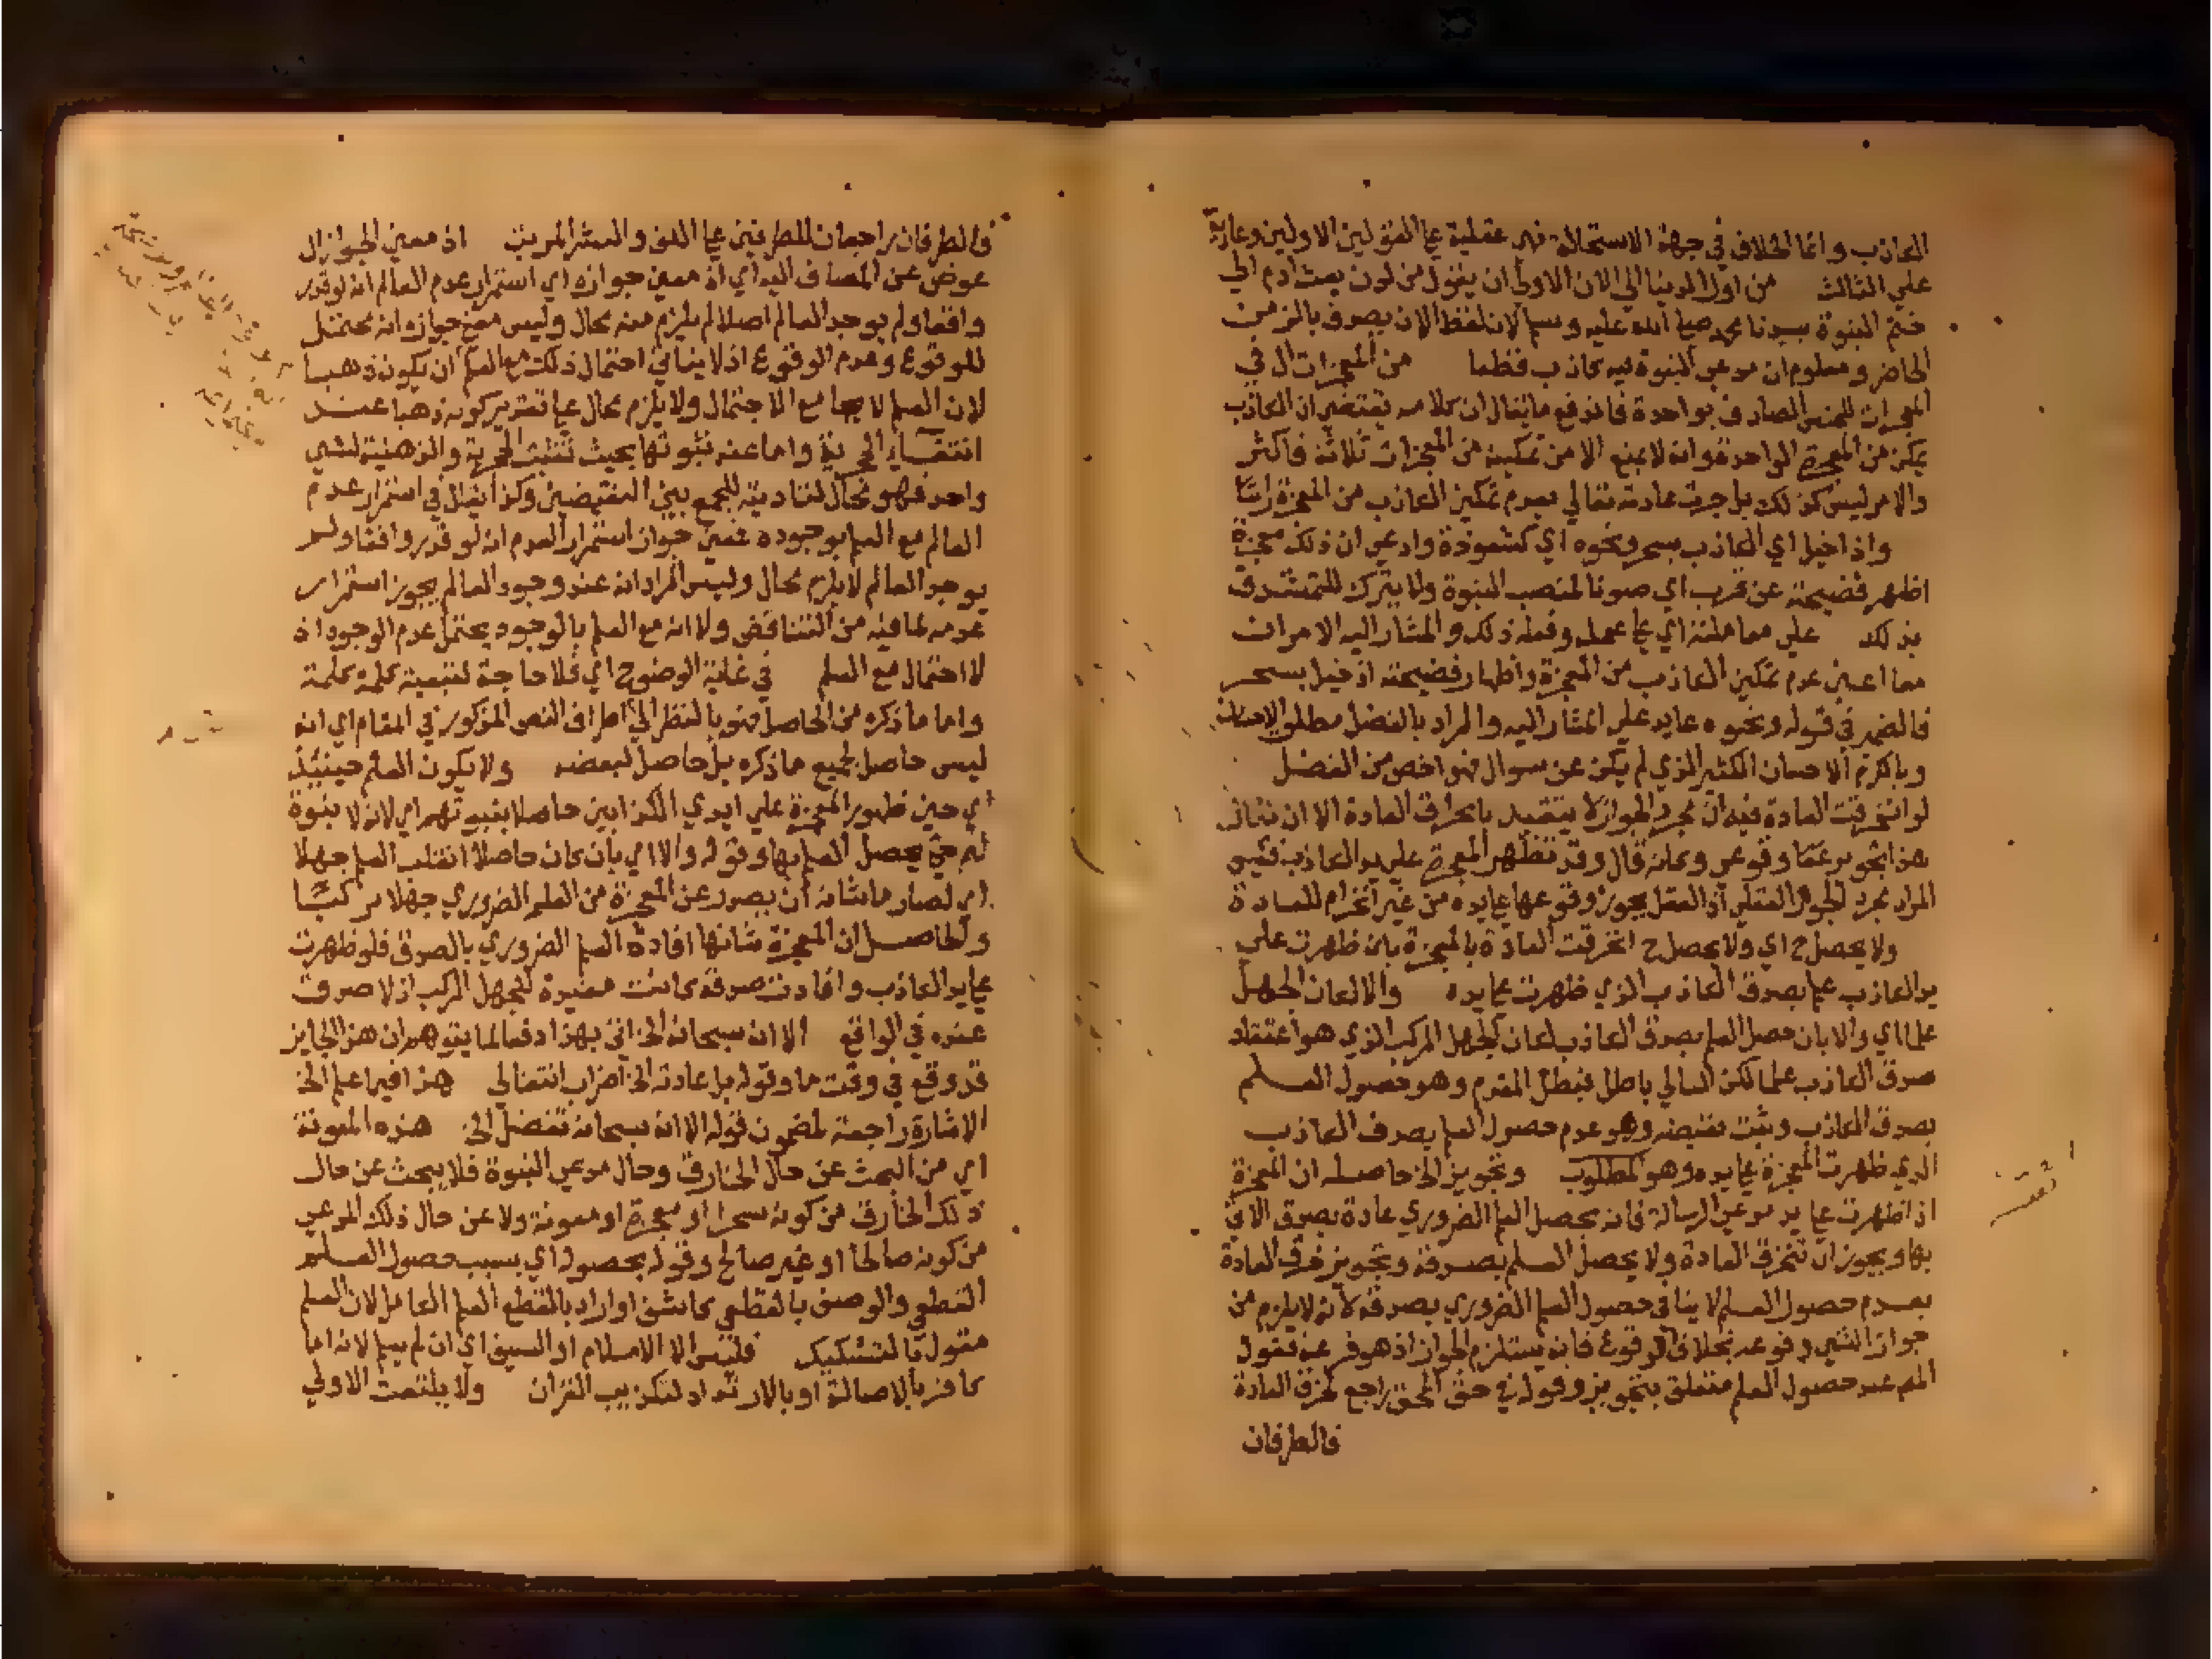 الكاذب وانما الخلاف في جهة الاستحالة فهي عقلية على القولين الاولين وعادية
على الثالث من اول الدنيا الى الان الاولى ان يقول من لدن بعث ادم الى
ختم النبوة بسيدنا محمد صلى الله عليه وسلم لان لفظ الان يصدق بالزمن
الحاضر ومعلوم ان مدعي النبوة فيه كاذب قطعا من المعجزات ال في
المعجزات للجنس الصادق بواحدة فاندفع ما يقال ان كلامه يقتضي ان الكاذب
يمكن من المعجزة الواحدة وانه لا يمنع الا من تمكينه من المعجزات ثلاثة فاكثر
والامر ليس كذلك بل جرت عادته تعالى بعدم تمكين الكاذب من المعجزة راسا
واذا خيل اي الكاذب بسحر ونحوه اي كشعوذة وادعى ان ذلك معجزة
اظهر فضيحته عن قرب اي صونا لمنصب النبوة ولا يترك للمتشدق
بذلك على معاملته اي على عمله وفعله ذلك والمشار اليه الامران
معا اعني عدم تمكين الكاذب من المعجزة واظهار فضيحته اذ خيل بسحر
فالضمير في قوله ونحوه عايد على المشار اليه والمراد بالفضل مطلق الاحسان
وبالكرم الاحسان الكثير الذي لم يكن عن سوال فهو اخص من الفضل
لو انخرقت العادة فيه ان مجرد الجواز لا يتقيد بانخراق العادة الا ان يقال
هذا تجويز وقوعي وكانه قال وقد تظهر المعجزة على يد الكاذب فليس
المراد مجرد الجواز العقلي اذ العقل يجوز وقوعها على يده من غير انخرام للعادة
ولا يحصل ح اي ولا يحصل ح انخرقت العادة بالمعجزة بان ظهرت على
يد الكاذب علم بصدق الكاذب الذي ظهرت على يده والا لكان الجهل
علما اي والا بان حصل العلم بصدق الكاذب لكان الجهل المركب الذي هو اعتقاد
صدق الكاذب علما لكن التالي باطل فبطل المقدم وهو حصول العلم
بصدق الكاذب وثبت نقيضه وهو عدم حصول العلم بصدق الكاذب
الذي ظهرت المعجزة على يده وهو المطلوب وتجويز الخ حاصله ان المعجزة
اذا ظهرت على يد مدعي الرسالة فانه يحصل العلم الضروري عادة بصدق الاتي
بها ويجوز ان تنخرق العادة ولا يحصل العلم بصدقه وتجويز خرق العادة
بعدم حصول العلم لا ينافي حصول العلم الضروري بصدقه لانه لا يلزم من
جواز الشي وقوعه بخلاف الوقوع فانه يستلزم الجواز اذ هو فرعه فقول
المص عند حصول العلم متعلق بتجويز وقوله في حق المحق راجع لخرق العادة
فالطرفان
فالطرفان راجعان للطرفين على اللف والنشر المرتب اذ معنى الجواز ال
عوض عن المضاف اليه اي اذ معنى جوازه اي استمرار عدم العالم انه لو قدر
واقعا ولم يوجد العالم اصلا لم يلزم منه محال وليس معنى جوازه انه محتمل
للوقوع وعدم الوقوع اذ لا ينافي احتمال ذلك مع العلم ان يكون ذهبا
لان العلم لا يجامع الاحتمال ولا يلزم محال على تقدير كونه ذهبا عند
انتفاء الحجرية واما عند ثبوتها بحيث تثبت الحجرية والذهبية لشي
واحد فهو محال لتاديته للجمع بين النقيضين وكذا يقال في استمرار عدم
العالم مع العلم بوجوده فمعنى جواز استمرار العدم انه لو قدر واقعا ولم
يوجد العالم لا يلزم محال وليس المراد انه عند وجود العالم يجوز استمرار
عدمه لما فيه من التناقض ولا انه مع العلم بالوجود يحتمل عدم الوجود اذ
لا احتمال مع العلم في غاية الوضوح اي فلا حاجة لتتبعيته كلمة كلمة
واما ما ذكره من الحاصل فهو بالنظر الى اطراف النص المذكور في المقام اي انه
ليس حاصل لجميع ما ذكره بل حاصل لبعضه ولا يكون العلم حينئذ
اي حين ظهور المعجزة على ايدي الكذابين حاصلا بنبوتهم اي لانه لا نبوة
لهم حتى يحصل العلم بها وقوله والا اي بان كان حاصلا انقلب العلم جهلا
اي لصار ما شانه ان يصدر عن المعجزة من العلم الضروري جهلا مركبا
والحاصل ان المعجزة شانها افادة العلم الضروري بالصدق فلو ظهرت
على يد الكاذب وافادت صدقه كانت مفيدة للجهل المركب اذ لا صدق
عنده في الواقع الا انه سبحانه الخ اتى بهذا دفعا لما يتوهم ان هذا الجايز
قد وقع في وقت ما وقوله بل عادته الخ اضراب انتقالي هذا فيما علم الخ
الاشارة راجعة لمضمون قوله الا انه سبحانه تفضل الخ هذه المعونة
اي من البحث عن حال الخارق وحال مدعي النبوة فلا يبحث عن حال
ذلك الخارق من كونه سحرا او معجزة او معونة ولا عن حال ذلك المدعي
من كونه صالحا او غير صالح وقوله بحصول اي بسبب حصول العلم
القطعي والوصف بالقطعي كاشف او اراد بالقطع العلم الكامل لان العلم
مقول بالتشكيك فليس الا الاسلام او السيف اي ان لم يسلم لانه اما
كافر بالاصالة او بالارتداد لتكذيب القران ولا يلتفت الاولى